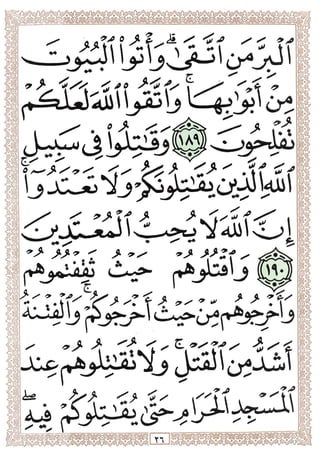 ٱلۡبِرَّ مَنِ ٱتَّقَىٰۗ وَأۡتُواْ ٱلۡبُيُوتَ
مِنۡ أَبۡوَٰبِهَاۚ وَٱتَّقُواْ ٱللَّهَ لَعَلَّكُمۡ
تُفۡلِحُونَ ١٨٩ وَقَٰتِلُواْ فِي سَبِيلِ
ٱللَّهِ ٱلَّذِينَ يُقَٰتِلُونَكُمۡ وَلَا تَعۡتَدُوٓاْۚ
إِنَّ ٱللَّهَ لَا يُحِبُّ ٱلۡمُعۡتَدِينَ
١٩٠ وَٱقۡتُلُوهُمۡ حَيۡثُ ثَقِفۡتُمُوهُمۡ
وَأَخۡرِجُوهُم مِّنۡ حَيۡثُ أَخۡرَجُوكُمۡۚ وَٱلۡفِتۡنَةُ
أَشَدُّ مِنَ ٱلۡقَتۡلِۚ وَلَا تُقَٰتِلُوهُمۡ عِندَ
ٱلۡمَسۡجِدِ ٱلۡحَرَامِ حَتَّىٰ يُقَٰتِلُوكُمۡ فِيهِۖ
٢٦